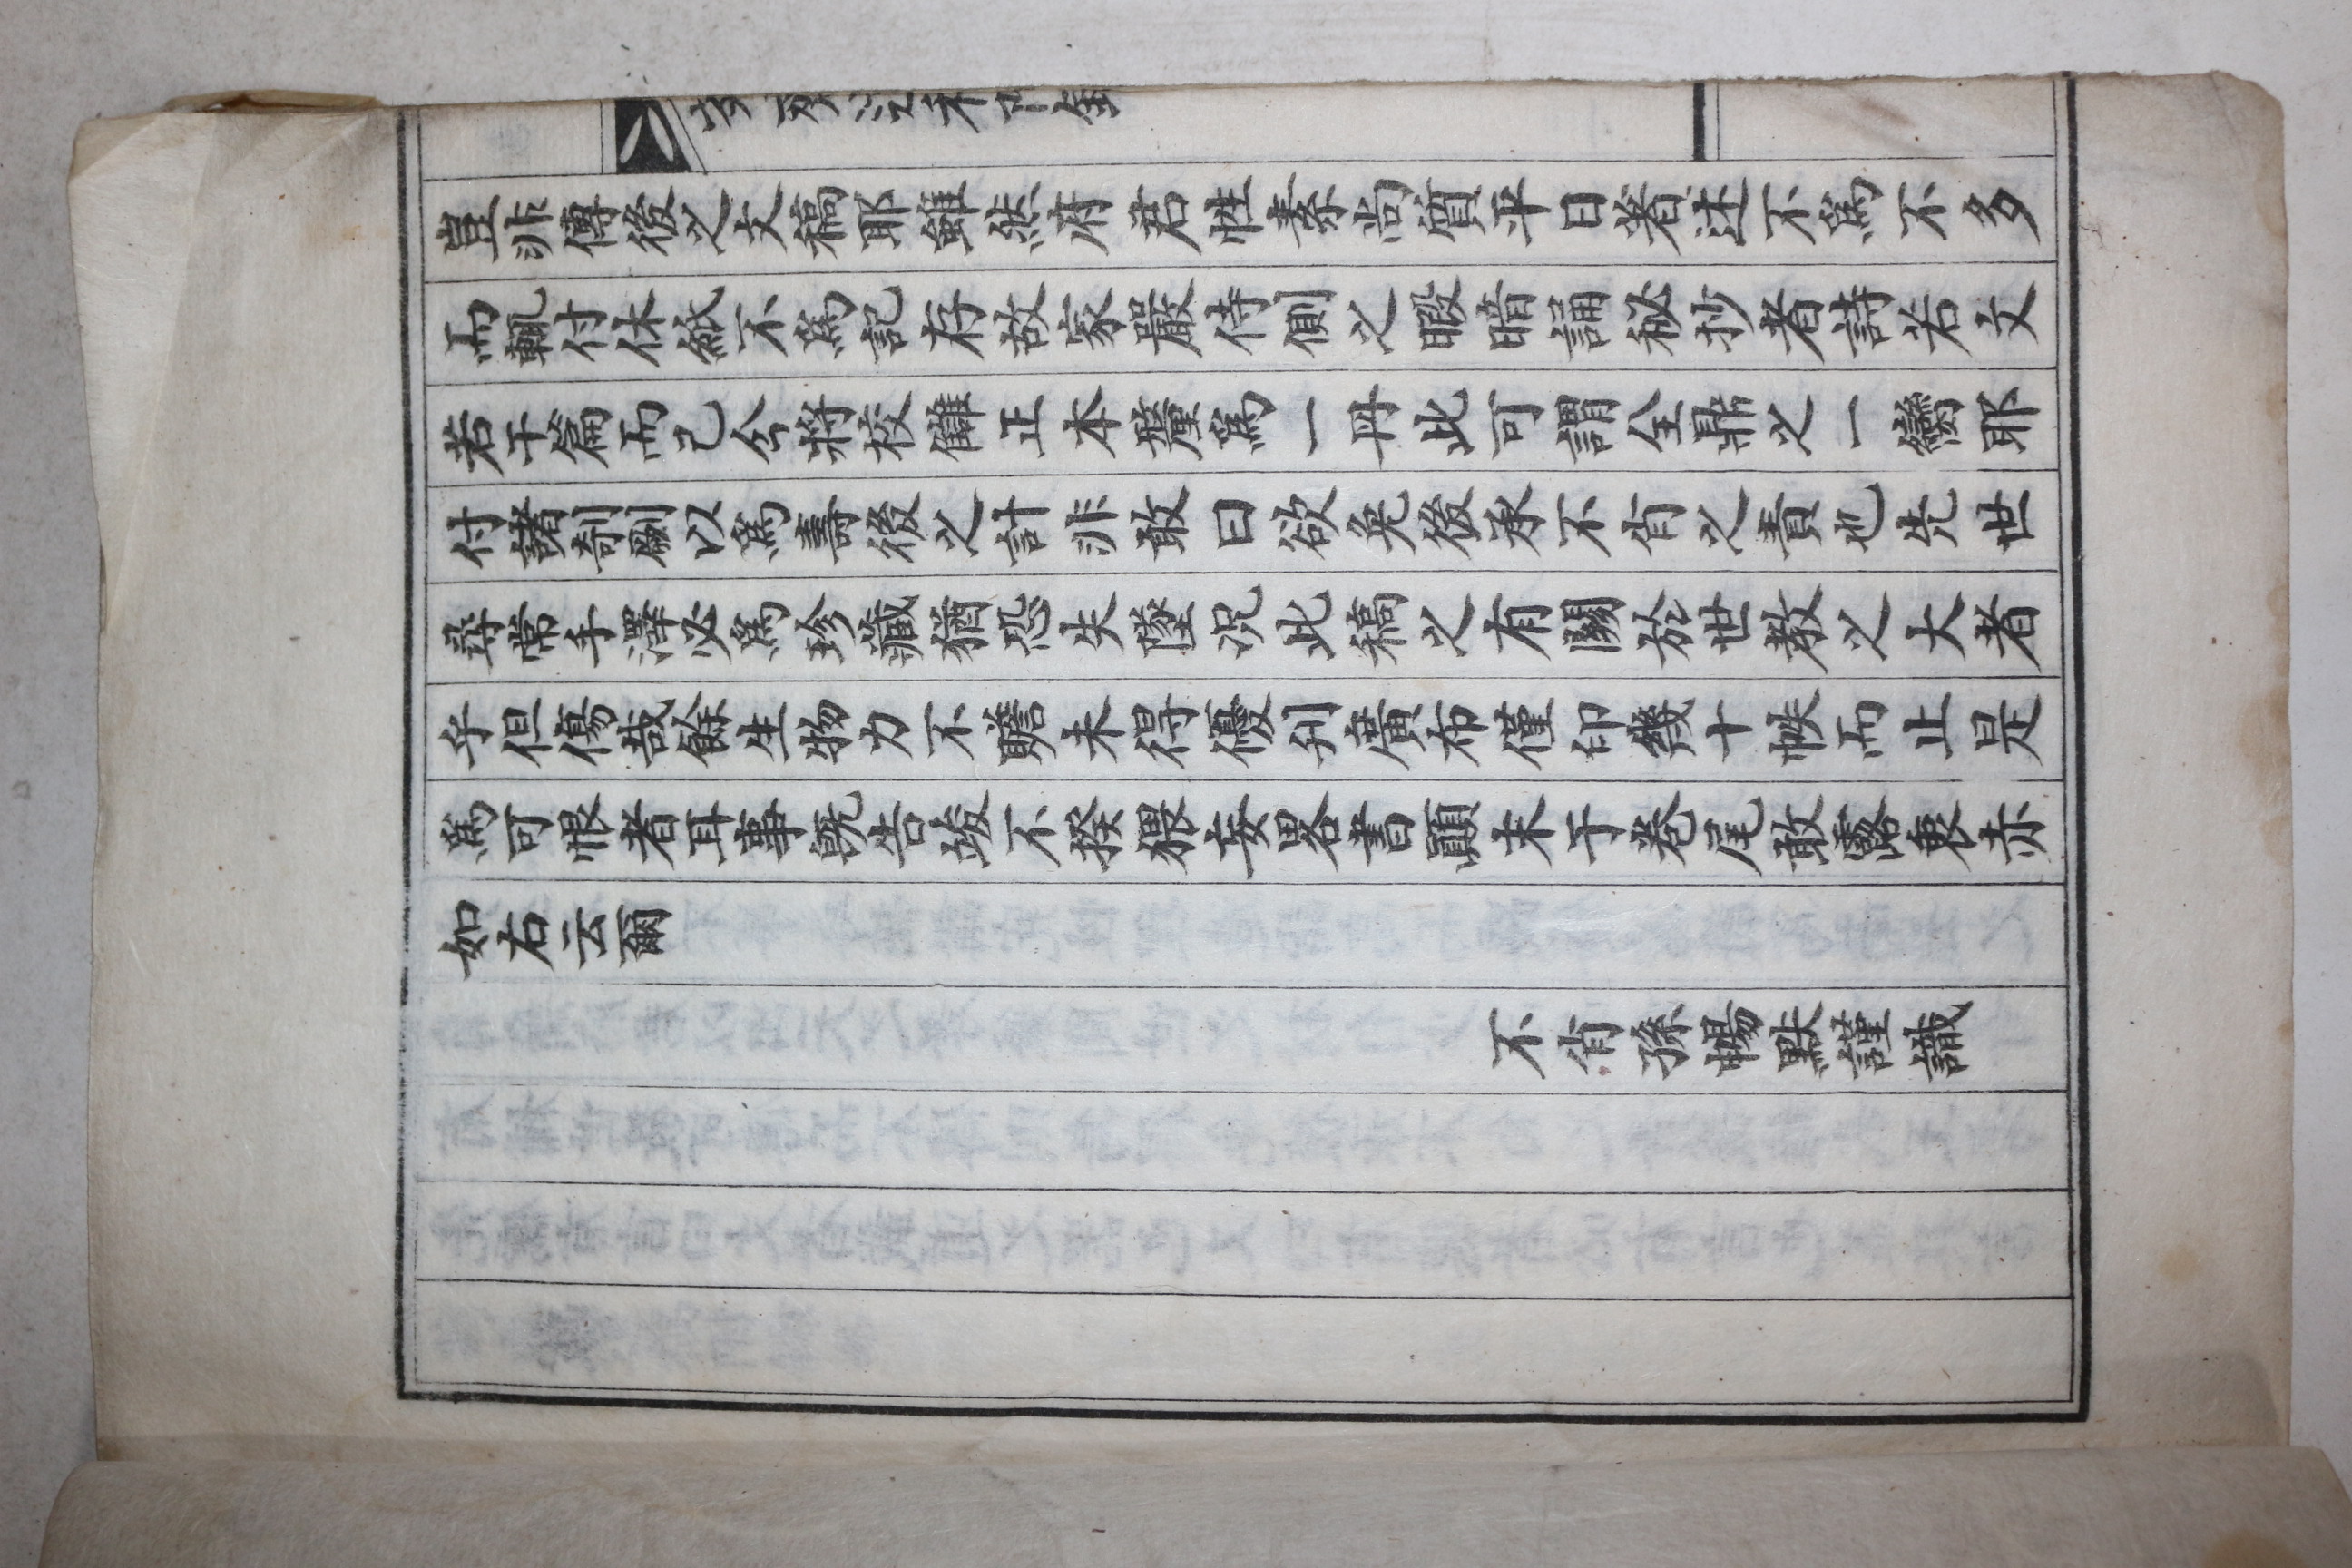 豈非傳後之文稿耶雖然府君性素尚質平日著述不爲不多
而輒付休紙不爲記存故家嚴侍側之暇暗誦秘抄者詩若文
若干篇而已今將校讎正本釐爲一丹此可謂全鼎之一臠耶
付諸剞劂以爲壽後之計非敢曰欲免後承不肖之責也先世
尋常手澤必爲珍藏猶恐失墜况此稿之有關於世敎之大者
乎但傷哉餘生物力不贍未得優刋廣布僅印幾十帙而止是
爲可恨者耳事旣告竣不揆猥妄畧書顚末于卷尾敢露衷赤
如右云爾
不肖孫暢默謹識